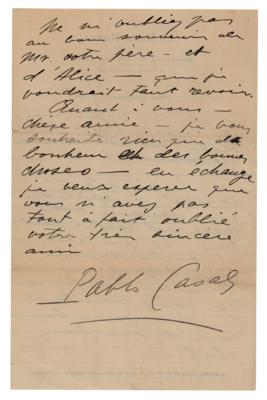 Ne m'oubliez pas
au bon souvenir de
Mr. votre père – et
d'Alice – que je
voudrait tant revoir.
Quant à vous –
chère amie – je vous
souhaite rien que du
bonheur et des bonnes
choses – en echange
je veux esperer que
vous n'avez pas
tout à fait oublié
votre très sincère
ami
Pablo Casals